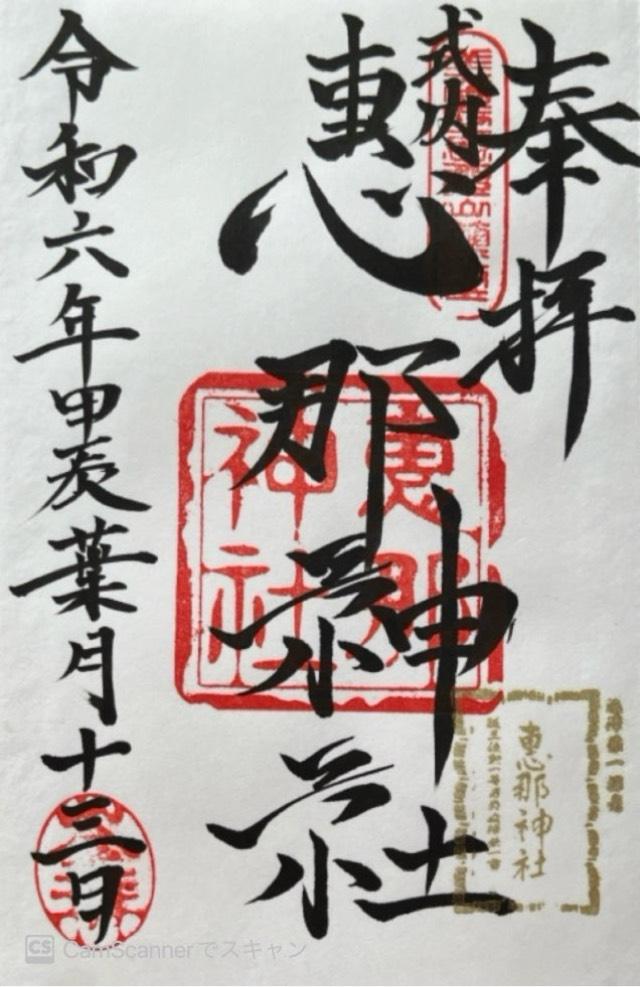 奉拝
式内
惠那神社
恵那神社
恵那神社
令和六年甲辰葉月十三日
CS CamScannerでスキャン